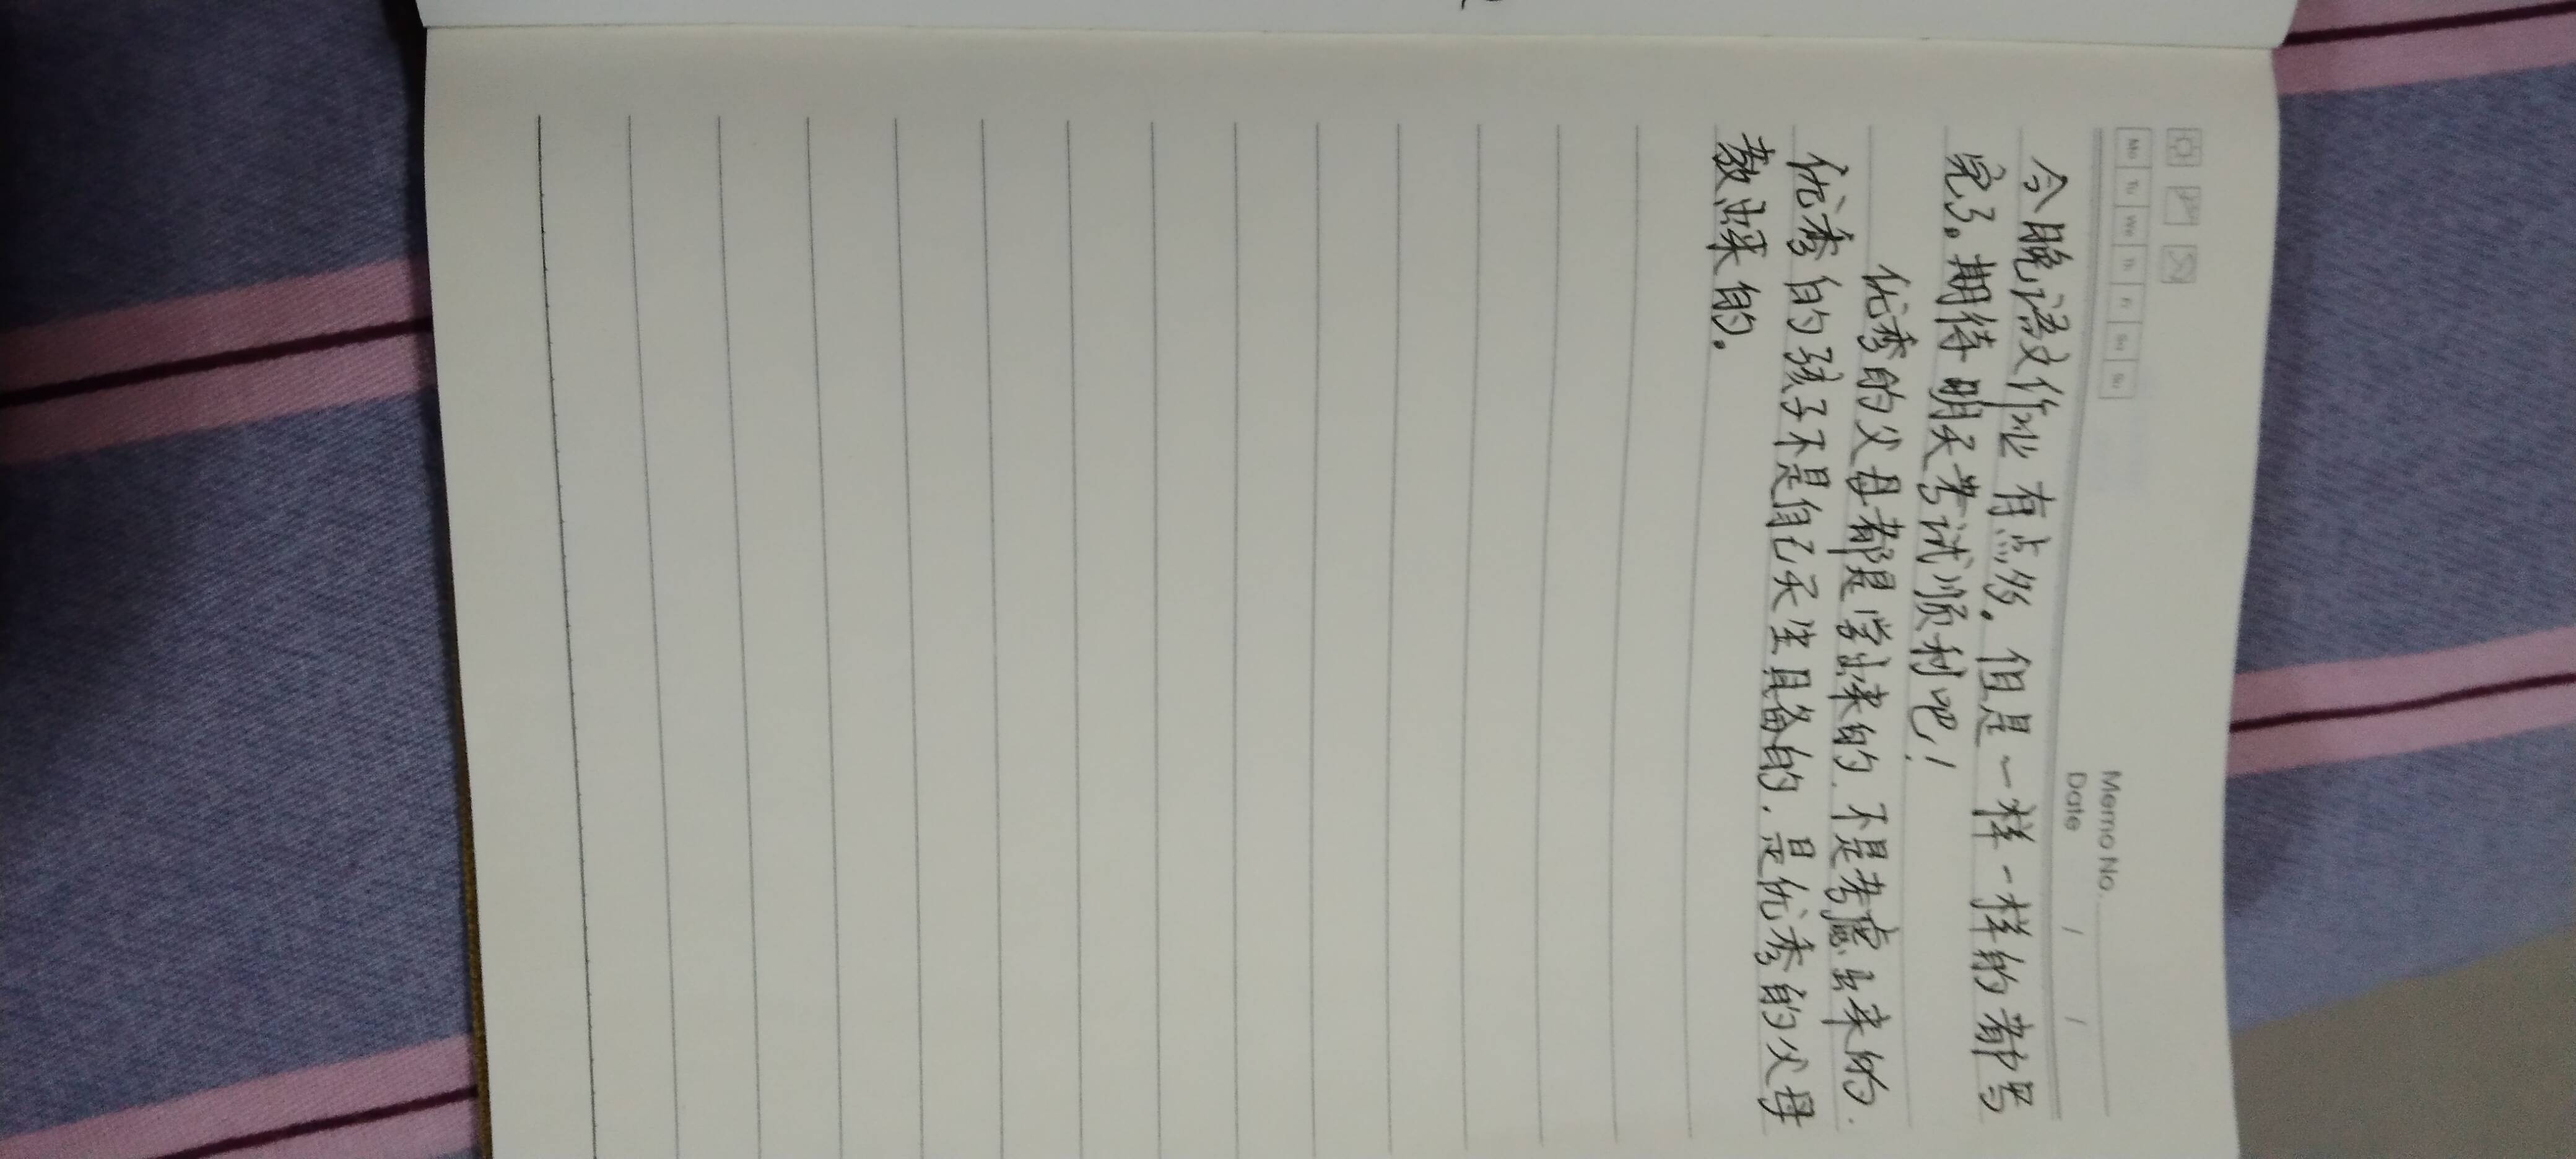 Memo No.
Mo Tu We Th Fr Sa Su
Date / /
今晚语文作业有点多。但是一样一样的都写
完了。期待明天考试顺利吧！
优秀的父母都是学出来的.不是考虑出来的.
优秀的孩子不是自己天生具备的.是优秀的父母
教出来的。